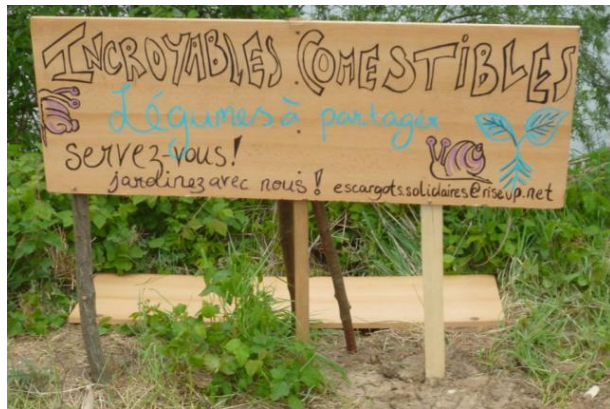 INCROYABLES COMESTIBLES
Légumes à partager
servez-vous!
jardinez avec nous! escargots.solidaires@riseup.net